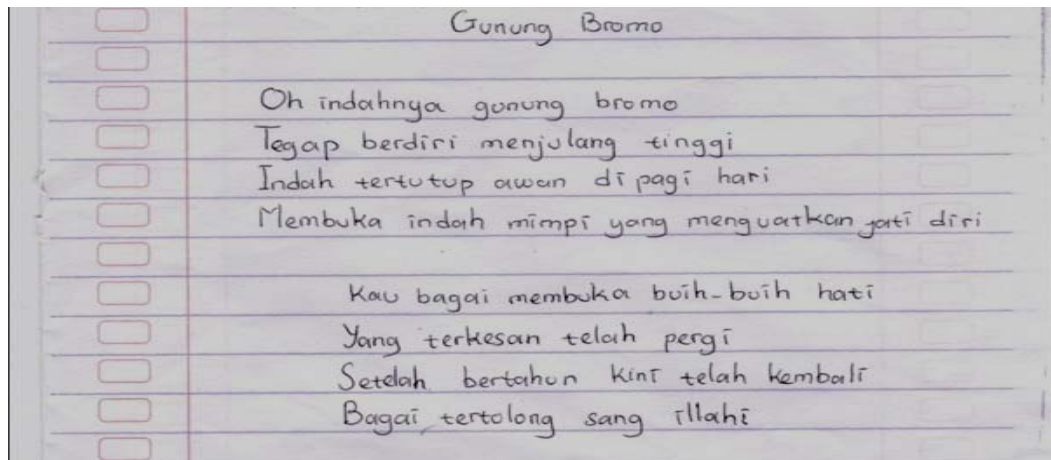 Gunung Bromo
Oh indahnya gunung bromo
Tegap berdiri menjulang tinggi
Indah tertutup awan di pagi hari
Membuka indah mimpi yang menguatkan jati diri
Kau bagai membuka buih-buih hati
Yang terkesan telah pergi
Setelah bertahun kini telah kembali
Bagai tertolong sang illahi